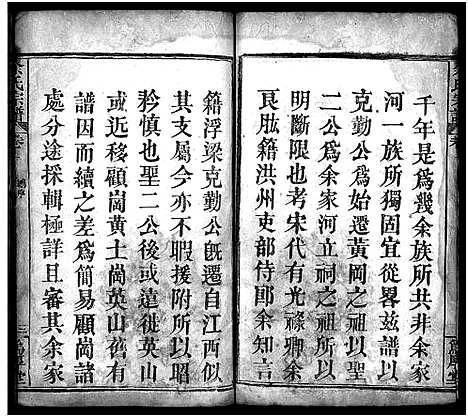 千年是爲幾余族所共非余家
河一族所獨固宜從畧茲譜以
克勤公爲始遷黃岡之祖以聖
二公爲余家河立祠之祖以
明斷限也考宋代有光祿卿余
良肱籍洪州吏部侍郎余知言
籍浮梁克勤公旣遷自江西似
其支屬今亦不暇援附所以昭
矜慎也聖二公後或遠徙英山
或近移顧崗黃土崗英山舊有
譜因而續之差爲簡易顧崗諸
處分途採輯極詳且審其余家
余氏宗譜
卷
三